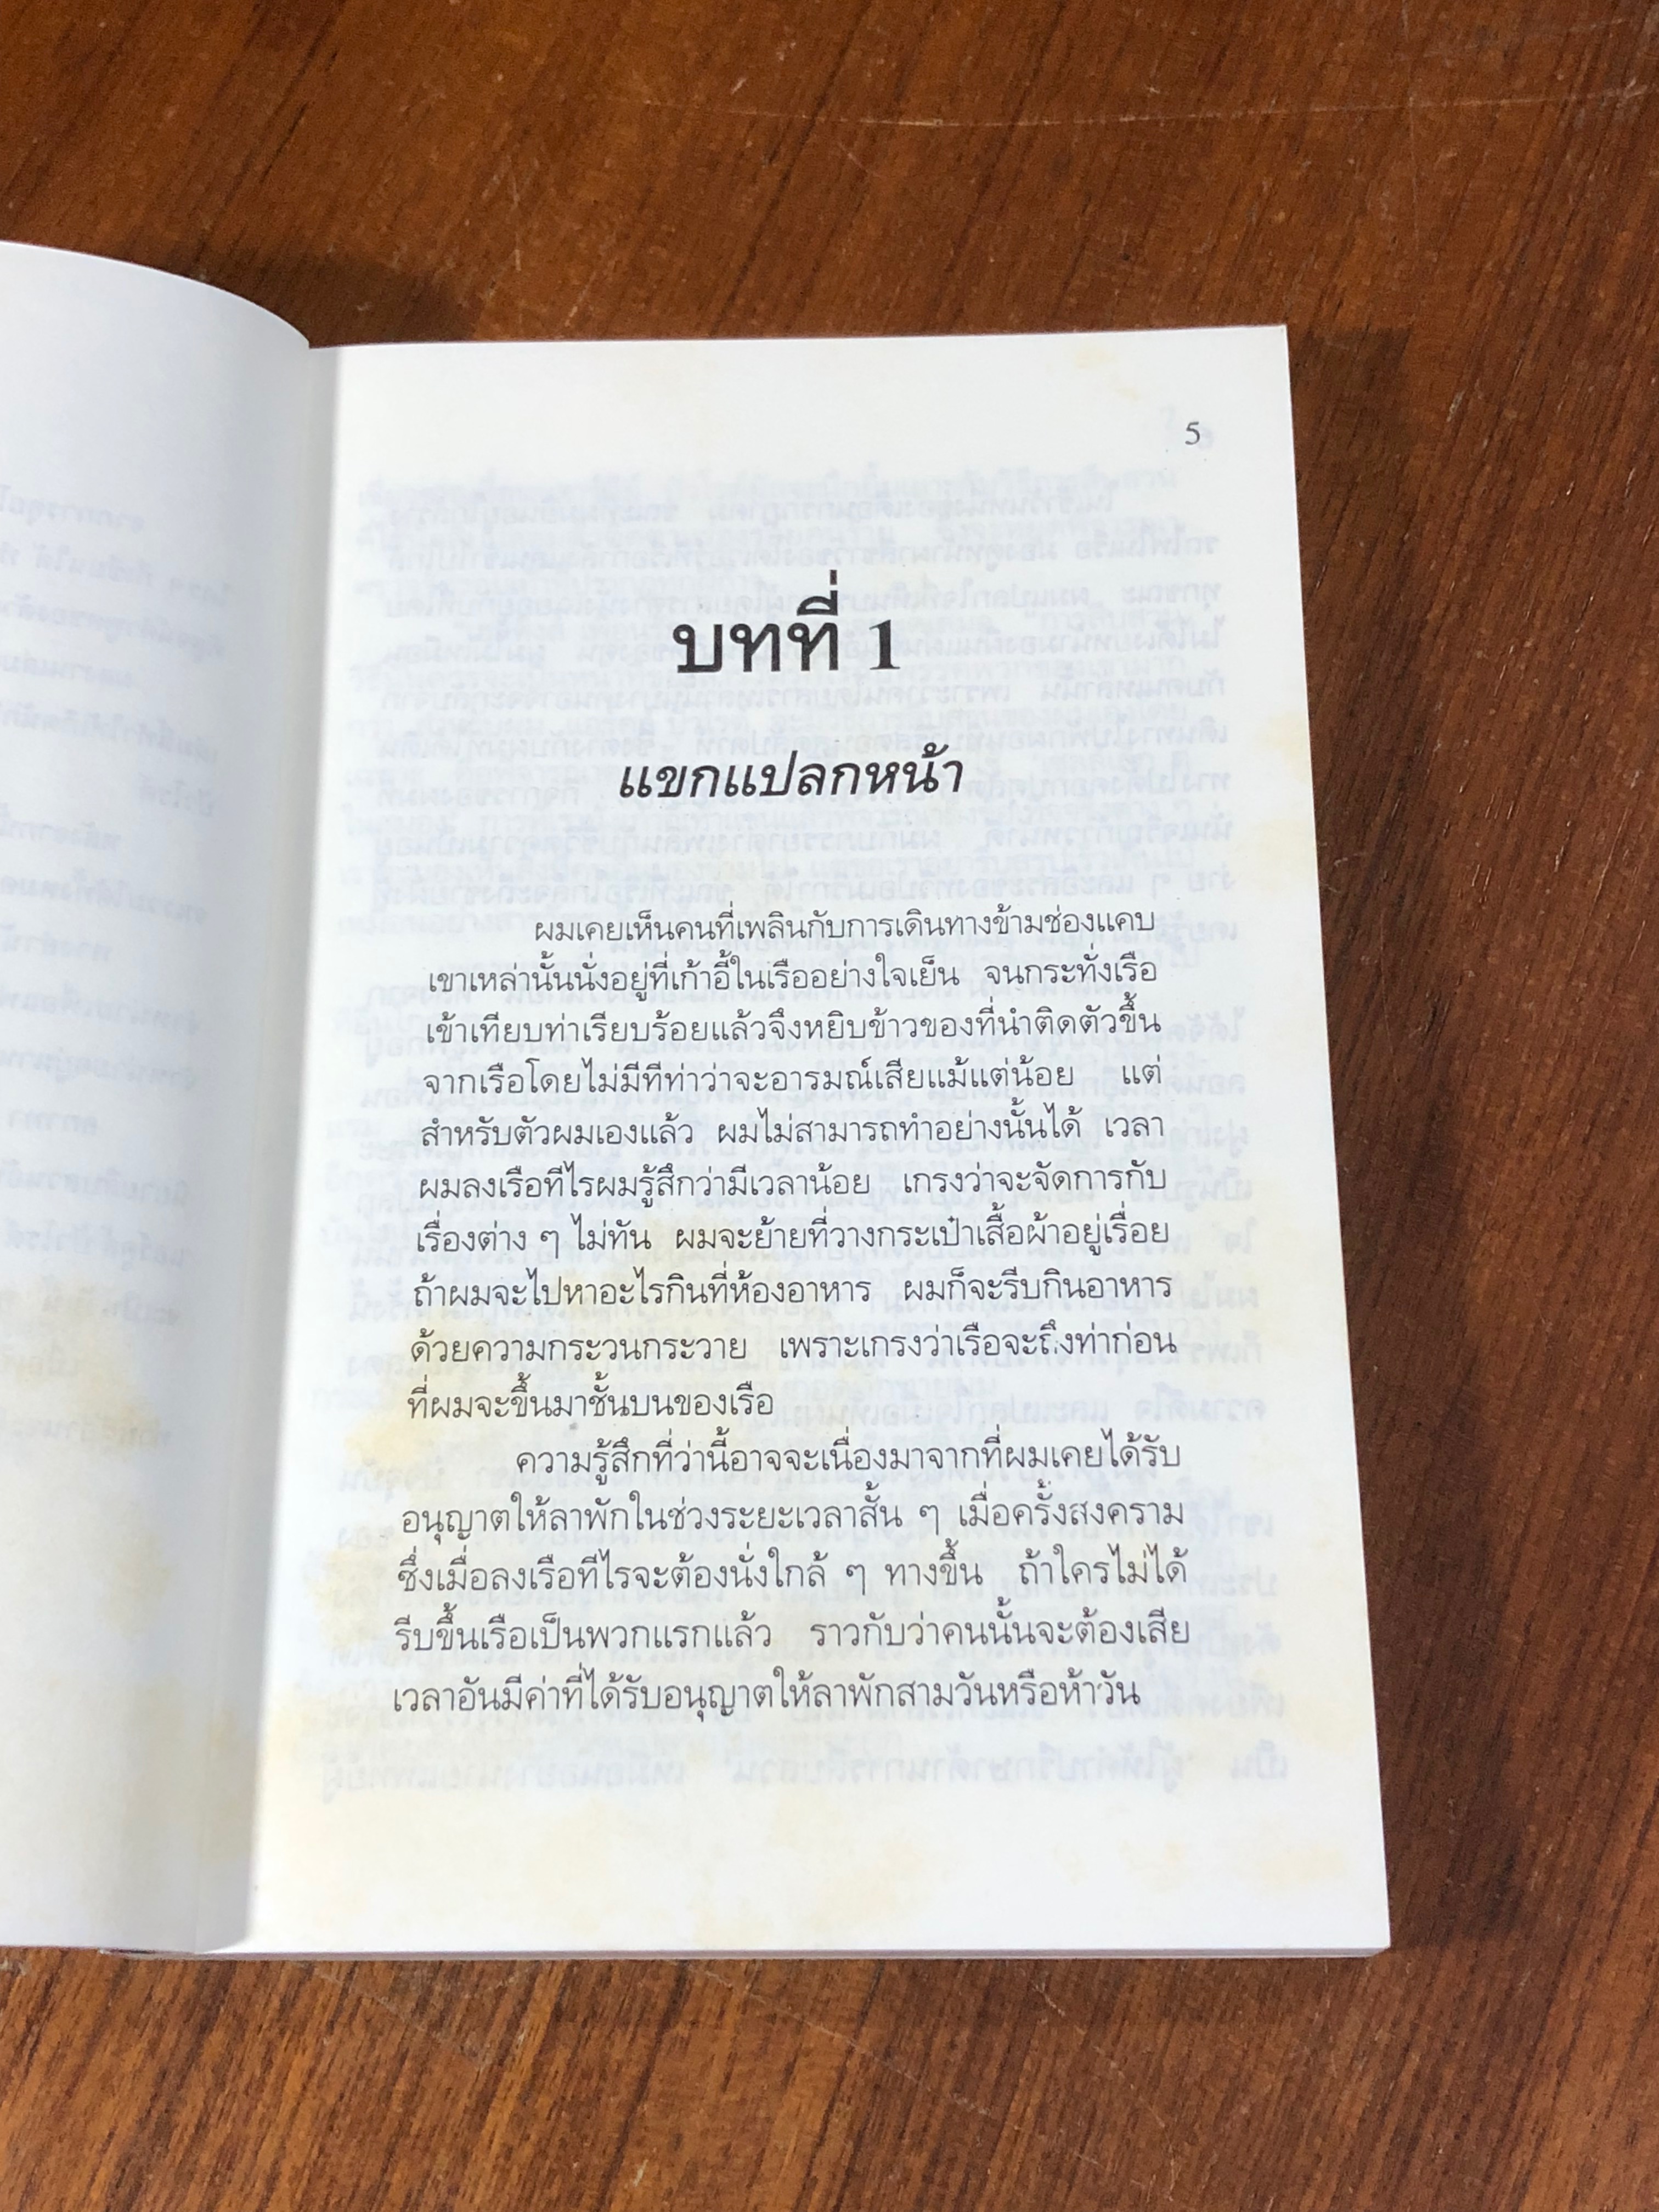 5
บทที่ 1
แขกแปลกหน้า
ผมเคยเห็นคนที่เพลินกับการเดินทางข้ามช่องแคบ
เขาเหล่านั้นนั่งอยู่ที่เก้าอี้ในเรืออย่างใจเย็น จนกระทั่งเรือ
เข้าเทียบท่าเรียบร้อยแล้วจึงหยิบข้าวของที่นำติดตัวขึ้น
จากเรือโดยไม่มีทีท่าว่าจะอารมณ์เสียแม้แต่น้อย แต่
สำหรับตัวผมเองแล้ว ผมไม่สามารถทำอย่างนั้นได้ เวลา
ผมลงเรือทีไรผมรู้สึกว่ามีเวลาน้อย เกรงว่าจะจัดการกับ
เรื่องต่าง ๆ ไม่ทัน ผมจะย้ายที่วางกระเป๋าเสื้อผ้าอยู่เรื่อย
ถ้าผมจะไปหาอะไรกินที่ห้องอาหาร ผมก็จะรีบกินอาหาร
ด้วยความกระวนกระวาย เพราะเกรงว่าเรือจะถึงท่าก่อน
ที่ผมจะขึ้นมาชั้นบนของเรือ
ความรู้สึกที่ว่านี้อาจจะเนื่องมาจากที่ผมเคยได้รับ
อนุญาตให้ลาพักในช่วงระยะเวลาสั้น ๆ เมื่อครั้งสงคราม
ซึ่งเมื่อลงเรือทีไรจะต้องนั่งใกล้ ๆ ทางขึ้น ถ้าใครไม่ได้
รีบขึ้นเรือเป็นพวกแรกแล้ว ราวกับว่าคนนั้นจะต้องเสีย
เวลาอันมีค่าที่ได้รับอนุญาตให้ลาพักสามวันหรือห้าวัน